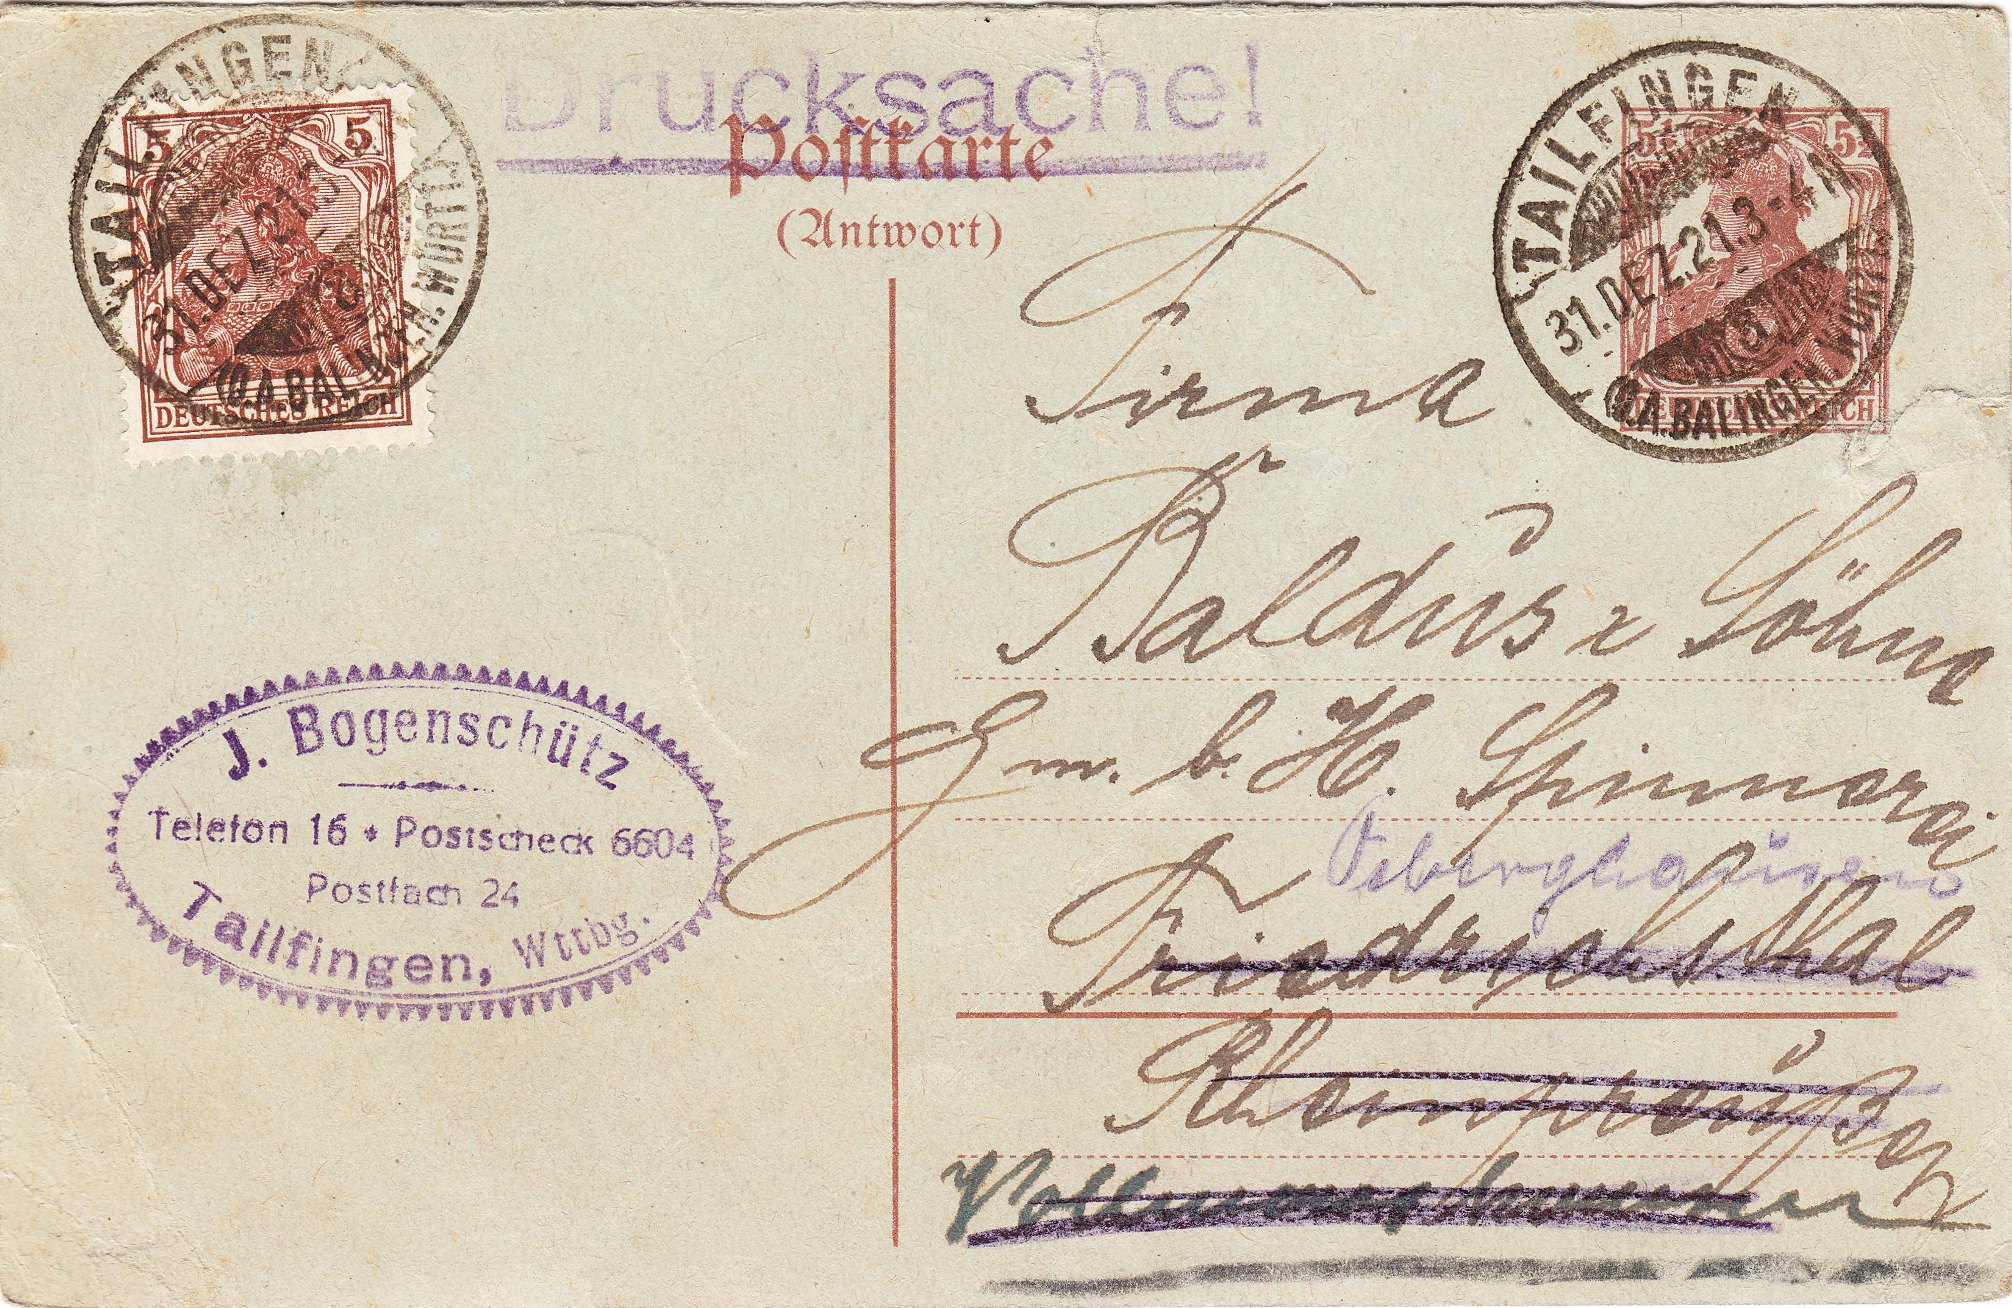 Drucksache!
Postkarte
(Antwort)
5 5
DEUTSCHES REICH
TAILFINGEN
31.DEZ.21.3-
(O.A.BALINGEN.WÜRTT.)
5½ 5½
DEUTSCHES REICH
TAILFINGEN
31.DEZ.21.3-4N
(O.A.BALINGEN WÜRTT.)
Firma
Baldus & Söhne
G m. b. H. Spinnerei
Osberghausen
Friedrichsthal
Rheinpreußen
J. Bogenschütz
Telefon 16 * Postscheck 6604
Postfach 24
Tailfingen, Wttbg.